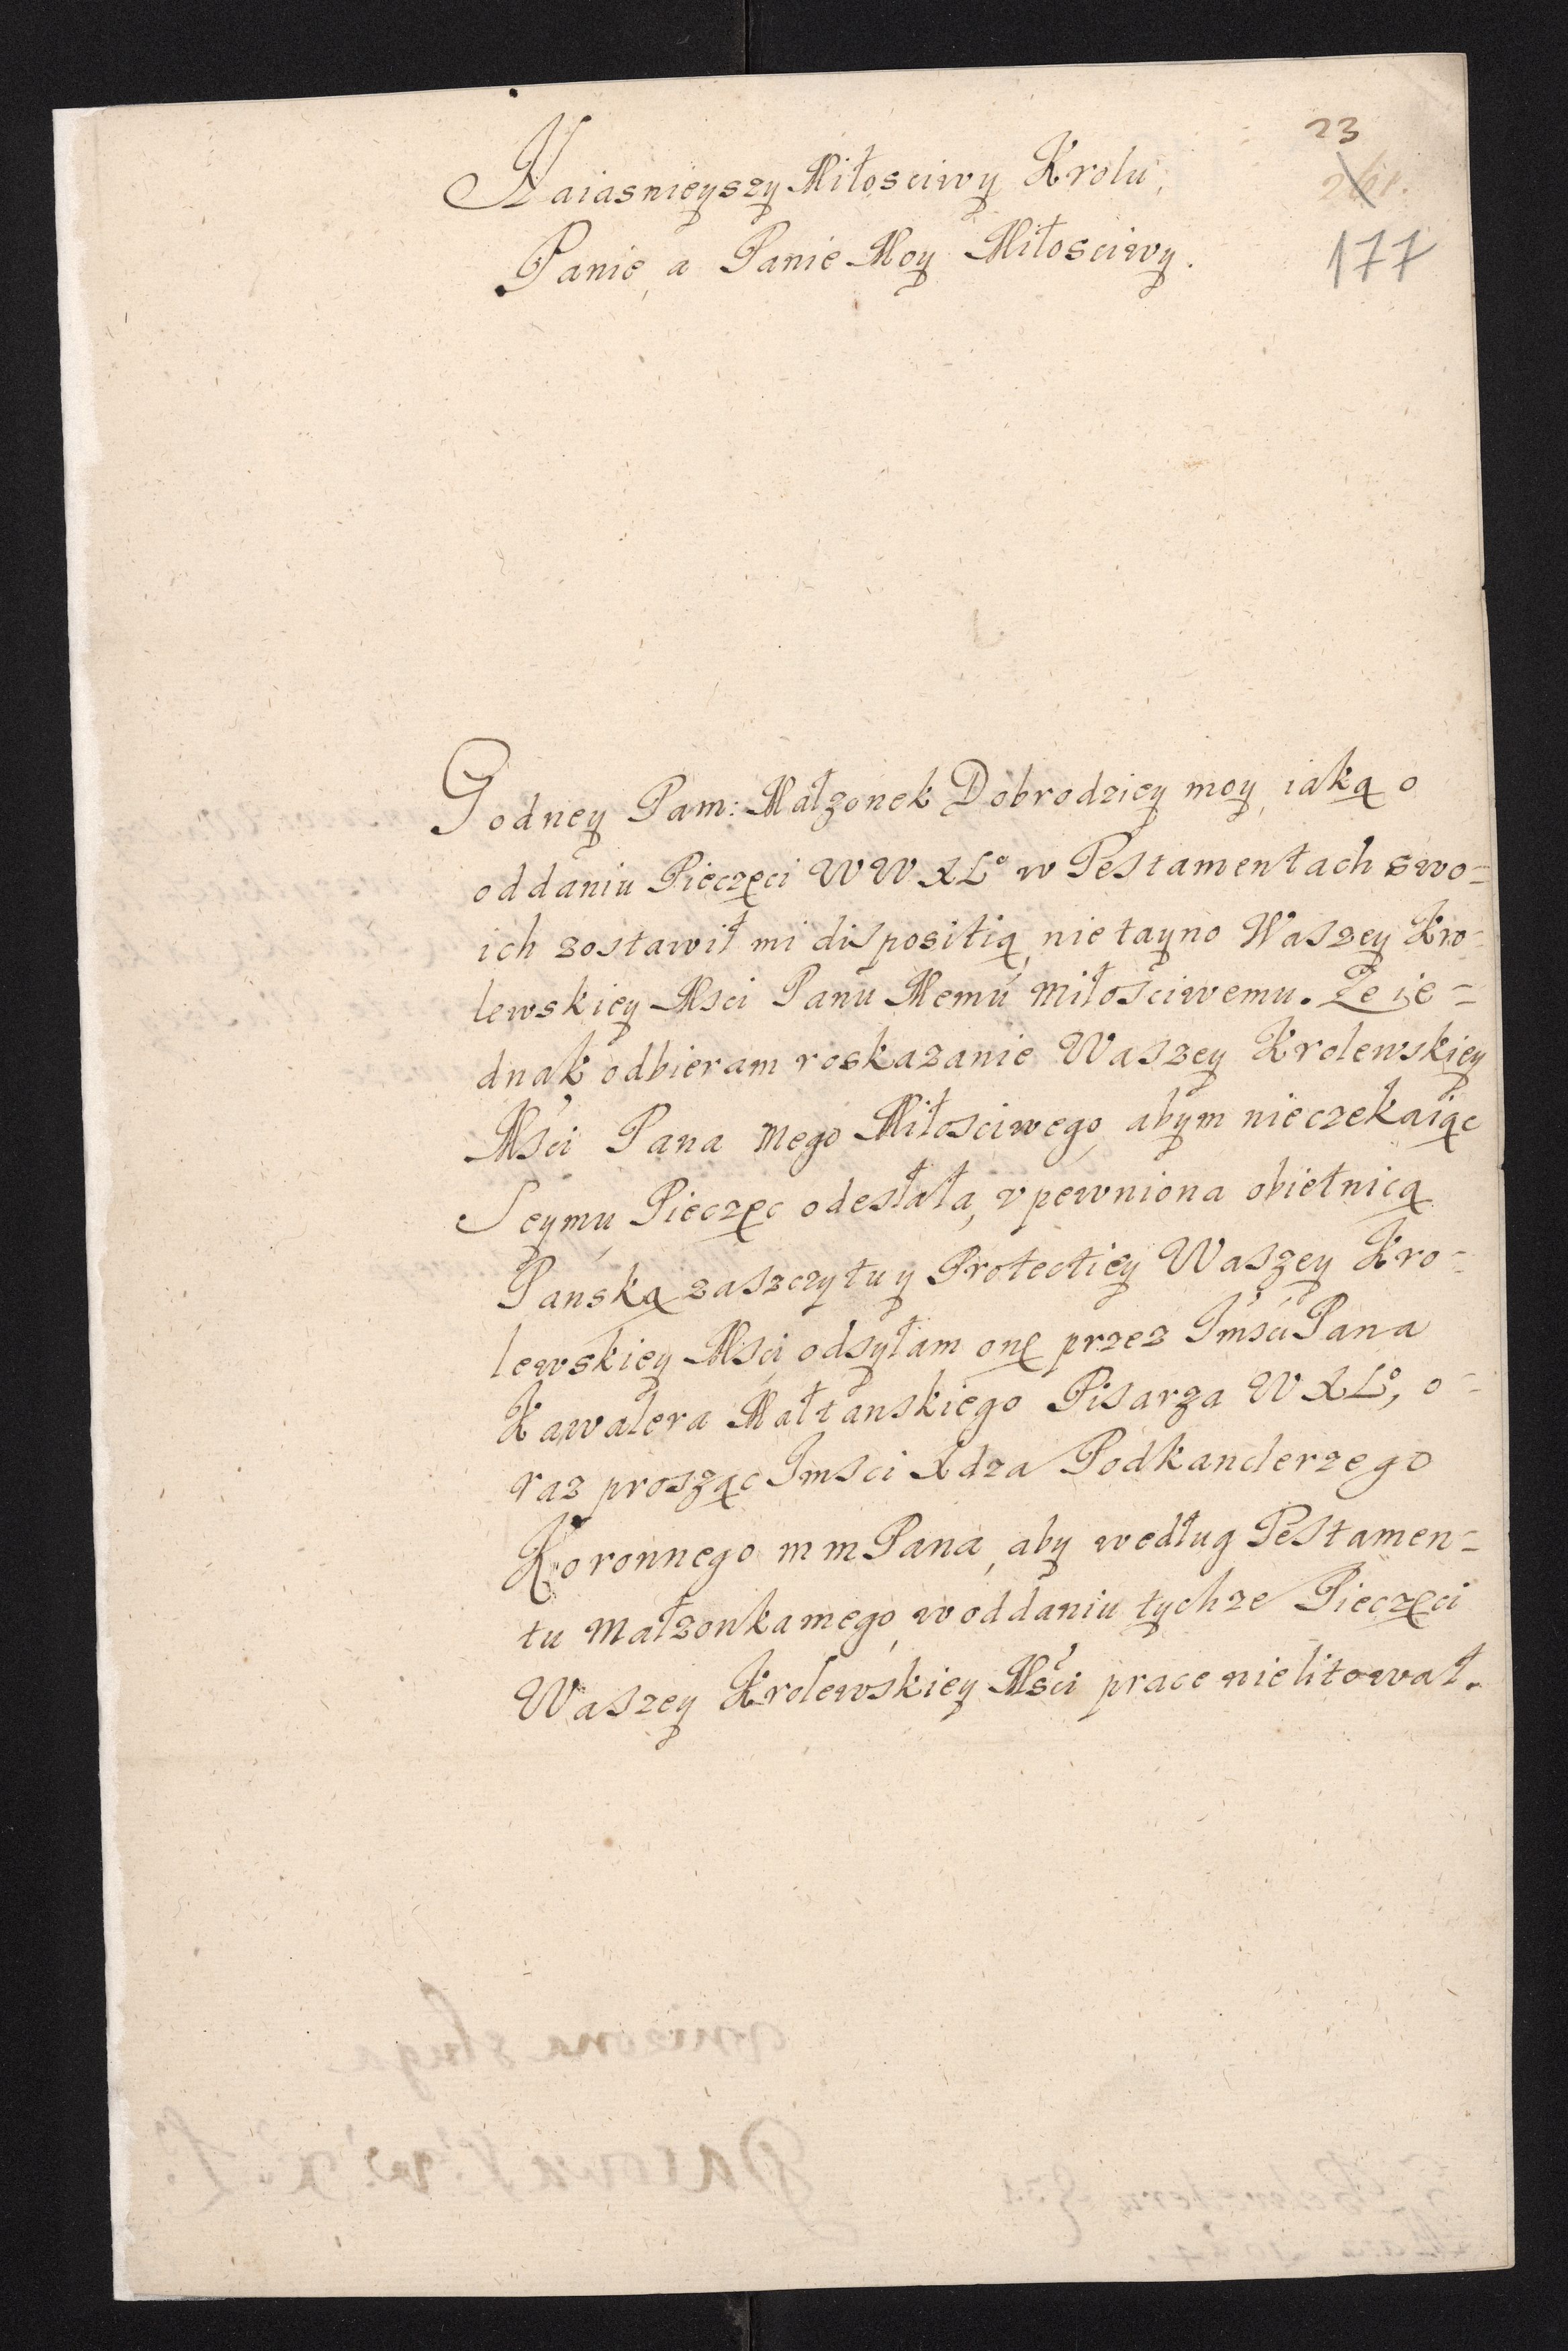 23
177
Naiasnieyszy Miłosciwy Krolu,
Panie, a Panie Moy Miłosciwy.
Godney Pam: Małzonek Dobrodziey moy, iaką o
oddaniu Pieczęci WWXLº w Testamentach swo=
ich zostawił mi dispositią, nie tayno Waszey Kro=
lewskiey Msci Panu Memu Miłosciwemu. Ze ie=
dnak odbieram roskazanie Waszey Krolewskiey
Mści Pana mego Miłosciwego, abym nieczekaiąc
Seymu Pieczęc odesłała, vpewniona obietnicą
Pańską zaszczytu y Protectiey Waszey Kro=
lewskiey Msci, odsyłam onę przez Jmści Pana
Kawalera Maltanskiego Pisarza WXLº, o=
raz prosząc Jmsci Xdza Podkanclerzego
Koronnego mm Pana, aby według Testamen=
tu Małzonka mego, w oddaniu tychze Pieczęci
Waszey Krolewskiey Mści prace nie litował.